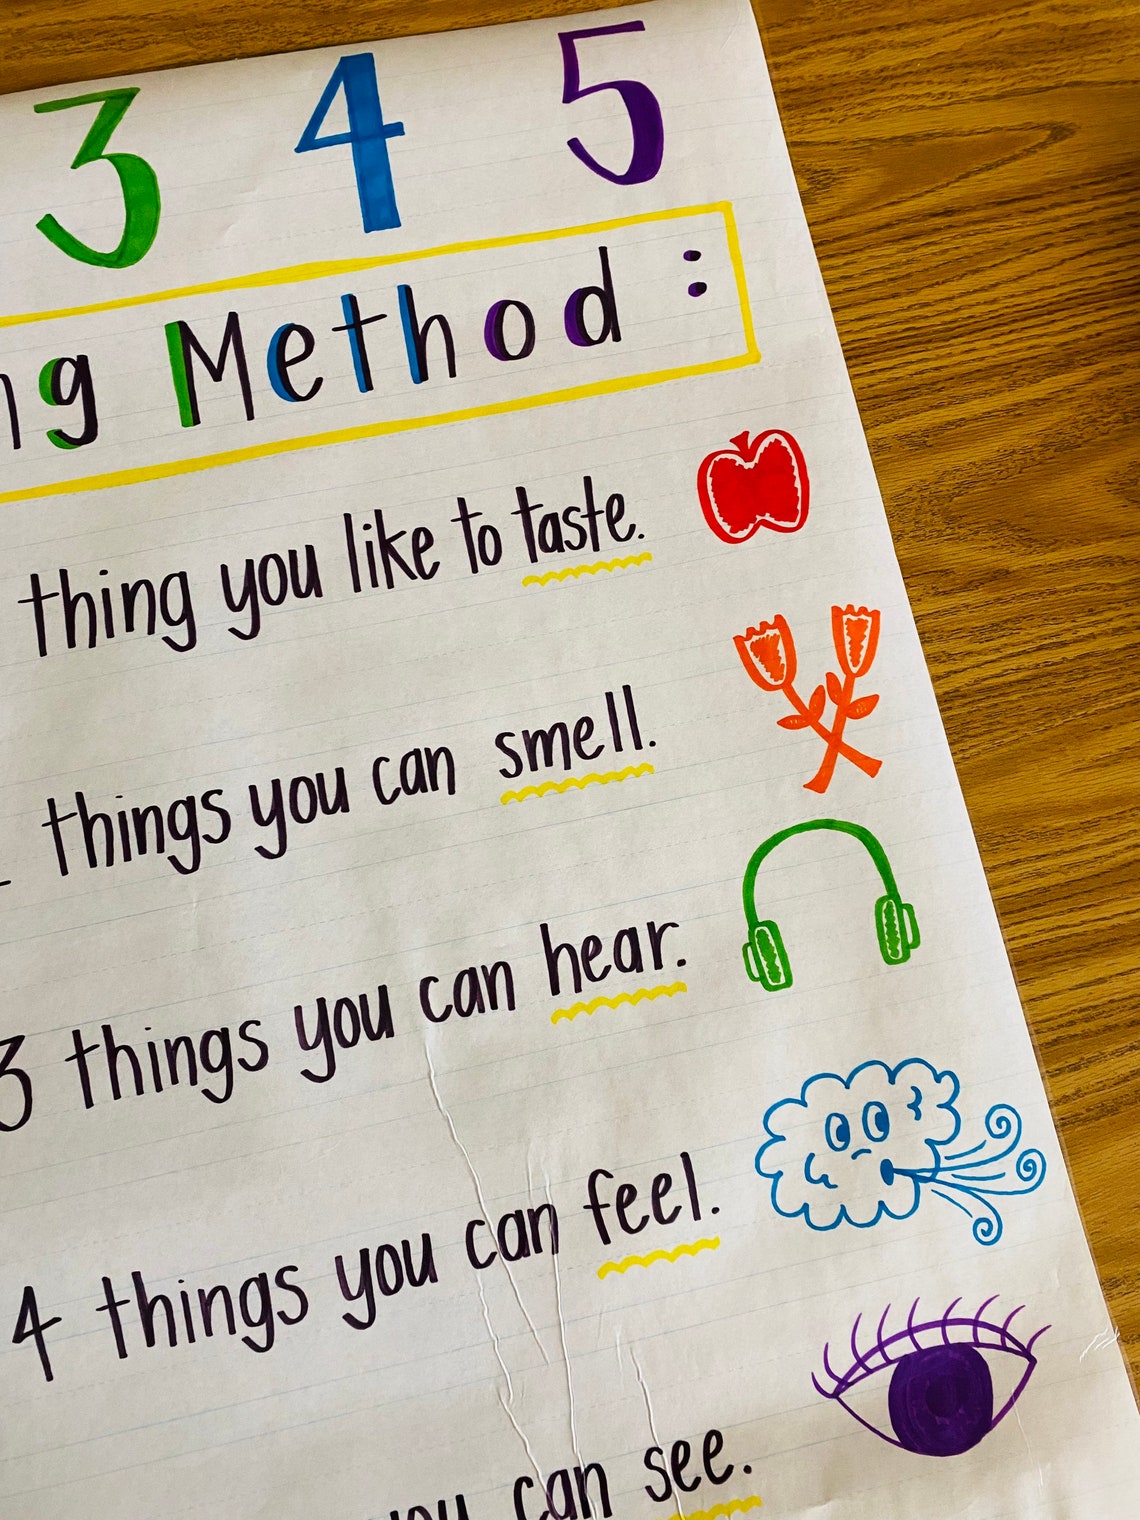 3 4 5
ng Method:
thing you like to taste.
things you can smell.
3 things you can hear.
4 things you can feel.
you can see.